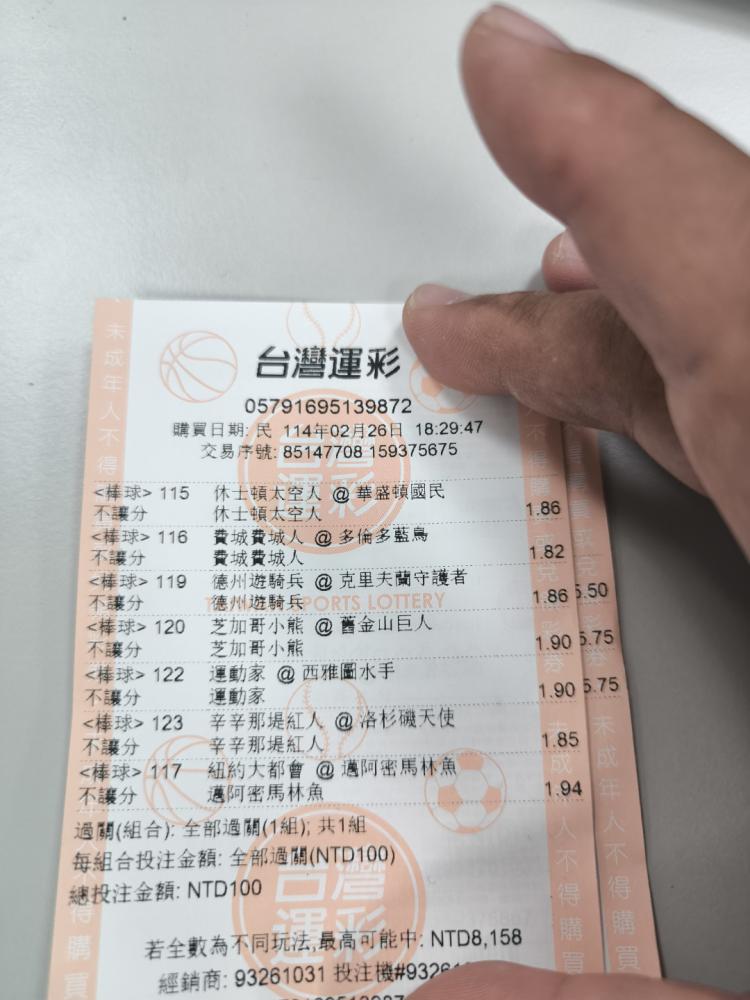 台灣運彩
05791695139872
購買日期: 民 114年02月26日 18:29:47
交易序號: 85147708 159375675
<棒球> 115 休士頓太空人 @ 華盛頓國民
不讓分 休士頓太空人 1.86
<棒球> 116 費城費城人 @ 多倫多藍鳥
不讓分 費城費城人 1.82
<棒球> 119 德州遊騎兵 @ 克里夫蘭守護者
不讓分 德州遊騎兵 1.86
<棒球> 120 芝加哥小熊 @ 舊金山巨人
不讓分 芝加哥小熊 1.90
<棒球> 122 運動家 @ 西雅圖水手
不讓分 運動家 1.90
<棒球> 123 辛辛那堤紅人 @ 洛杉磯天使
不讓分 辛辛那堤紅人 1.85
<棒球> 117 紐約大都會 @ 邁阿密馬林魚
不讓分 邁阿密馬林魚 1.94
過關(組合): 全部過關(1組); 共1組
每組合投注金額: 全部過關(NTD100)
總投注金額: NTD100
若全數為不同玩法,最高可能中: NTD8,158
經銷商: 93261031 投注機#9326
5.50
5.75
5.75
SPORTS LOTTERY
台灣運彩
台灣運彩
未成年人不得
未成年人不得購買
得購買